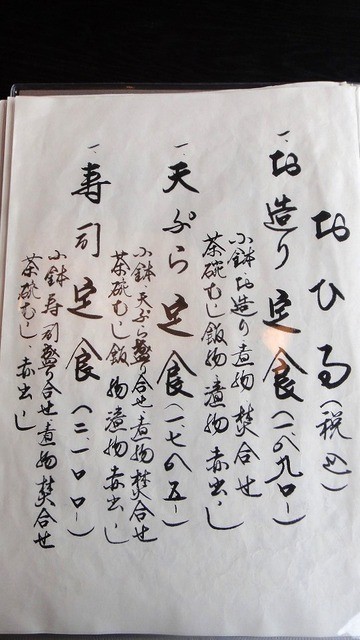 おひる（税込）
一、お造り定食（一、八九〇ー）
小鉢、お造り、煮物、焚合せ
茶碗むし、飯物、漬物、赤出し
一、天ぷら定食（一、七八五ー）
小鉢、天ぷら盛り合せ、煮物、焚合せ
茶碗むし、飯物、漬物、赤出し
一、寿司定食（二、一〇〇ー）
小鉢、寿司盛り合せ、煮物、焚合せ
茶碗むし、赤出し